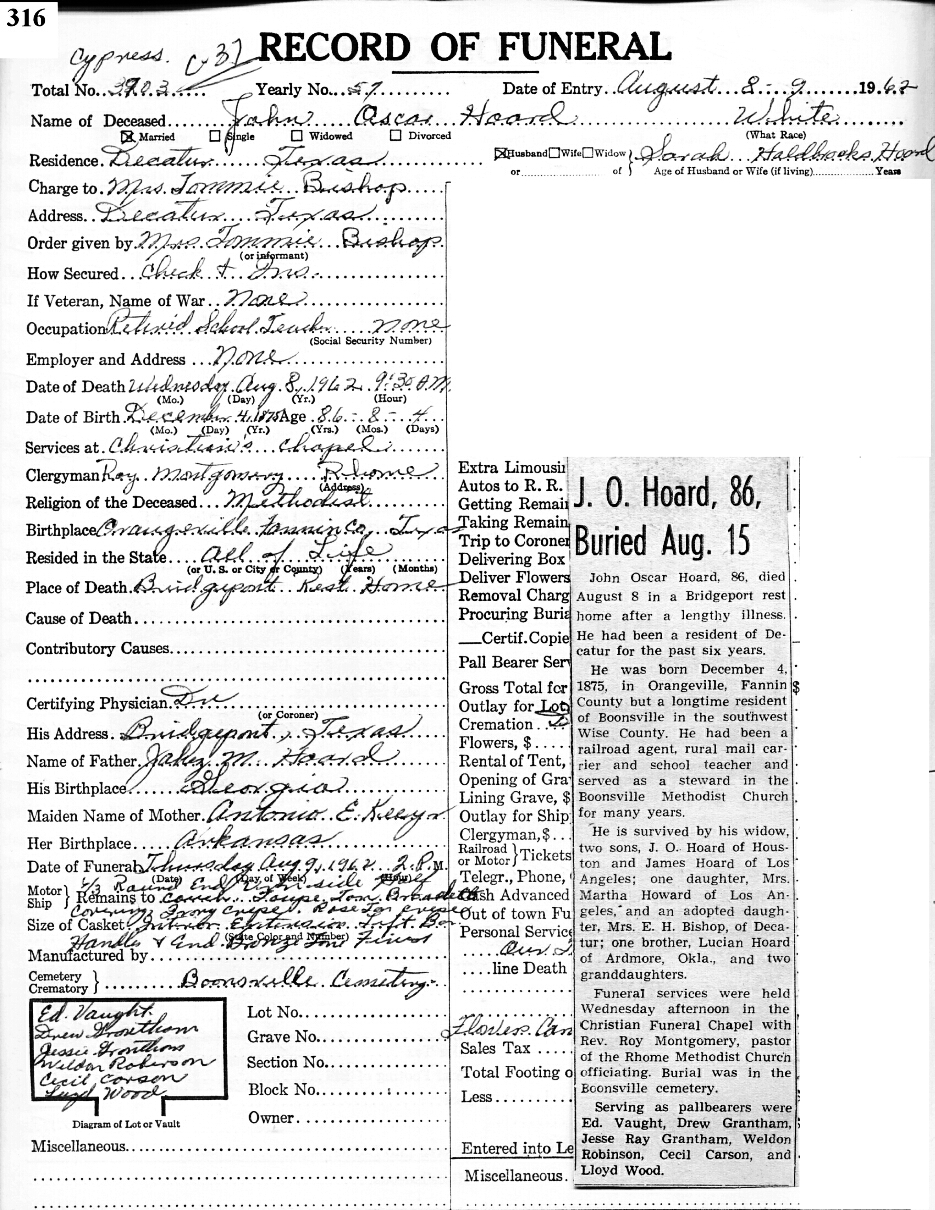 316
Cypress. C-37
RECORD OF FUNERAL
Total No. 3703 Yearly No. 57 Date of Entry August 8 - 9 1962
Name of Deceased John Oscar Hoard White
☒ Married ☐ Single ☐ Widowed ☐ Divorced (What Race)
Residence Decatur Texas ☒Husband ☐Wife ☐Widow } Sarah Hoard
or of } Age of Husband or Wife (if living) Years
Charge to Mrs. Tommie Bishop
Address Decatur Texas
Order given by Mrs Tommie Bishop
(or informant)
How Secured Check & Ins.
If Veteran, Name of War None
Occupation Retired School Teacher none
(Social Security Number)
Employer and Address None
Date of Death Wednesday Aug. 8, 1962 9:30 A.M.
(Mo.) (Day) (Yr.) (Hour)
Date of Birth December 4, 1875 Age 86 - 8 - 4
(Mo.) (Day) (Yr.) (Yrs.) (Mos.) (Days)
Services at Christian's Chapel
Clergyman Roy Montgomery Rhome
(Address)
Religion of the Deceased Methodist
Birthplace Orangeville Fannin Co., Texas
Resided in the State All of Life
(or U. S. or City or County) (Years) (Months)
Place of Death Bridgeport Rest Home
Cause of Death
Contributory Causes
Certifying Physician Dr
(or Coroner)
His Address Bridgeport, Texas
Name of Father M. Hoard
His Birthplace Georgia
Maiden Name of Mother E.
Her Birthplace Arkansas
Date of Funeral Thursday Aug 9, 1962 2 P.M.
(Date) (Day of Week) (Hour)
Motor } 6/3 Round End
Ship } Remains to
Size of Casket Interior Extension
(State Color and Number)
Handles & End
Manufactured by
Cemetery }
Crematory } Boonsville Cemetery
Ed. Vaught
Drew Grontham
Jessie Gronthom
Weldon Roberson
Cecil Carson
Loyd Wood
Diagram of Lot or Vault
Lot No.
Grave No.
Section No.
Block No.
Owner
Miscellaneous
Extra Limousi
Autos to R. R.
Getting Remai
Taking Remain
Trip to Coroner
Delivering Box
Deliver Flowers
Removal Charg
Procuring Buria
Certif. Copie
Pall Bearer Ser
Gross Total for
Outlay for Lot
Cremation
Flowers, $
Rental of Tent,
Opening of Gra
Lining Grave, $
Outlay for Ship
Clergyman, $
Railroad }
or Motor } Tickets
Telegr., Phone,
Cash Advanced
Out of town Fu
Personal Service
line Death
Flowers Can
Sales Tax
Total Footing o
Less
Entered into Le
Miscellaneous
J. O. Hoard, 86,
Buried Aug. 15
John Oscar Hoard, 86, died
August 8 in a Bridgeport rest
home after a lengthy illness.
He had been a resident of De-
catur for the past six years.
He was born December 4,
1875, in Orangeville, Fannin
County but a longtime resident
of Boonsville in the southwest
Wise County. He had been a
railroad agent, rural mail car-
rier and school teacher and
served as a steward in the
Boonsville Methodist Church
for many years.
He is survived by his widow,
two sons, J. O. Hoard of Hous-
ton and James Hoard of Los
Angeles; one daughter, Mrs.
Martha Howard of Los An-
geles, and an adopted daugh-
ter, Mrs. E. H. Bishop, of Deca-
tur; one brother, Lucian Hoard
of Ardmore, Okla., and two
granddaughters.
Funeral services were held
Wednesday afternoon in the
Christian Funeral Chapel with
Rev. Roy Montgomery, pastor
of the Rhome Methodist Church
officiating. Burial was in the
Boonsville cemetery.
Serving as pallbearers were
Ed. Vaught, Drew Grantham,
Jesse Ray Grantham, Weldon
Robinson, Cecil Carson, and
Lloyd Wood.